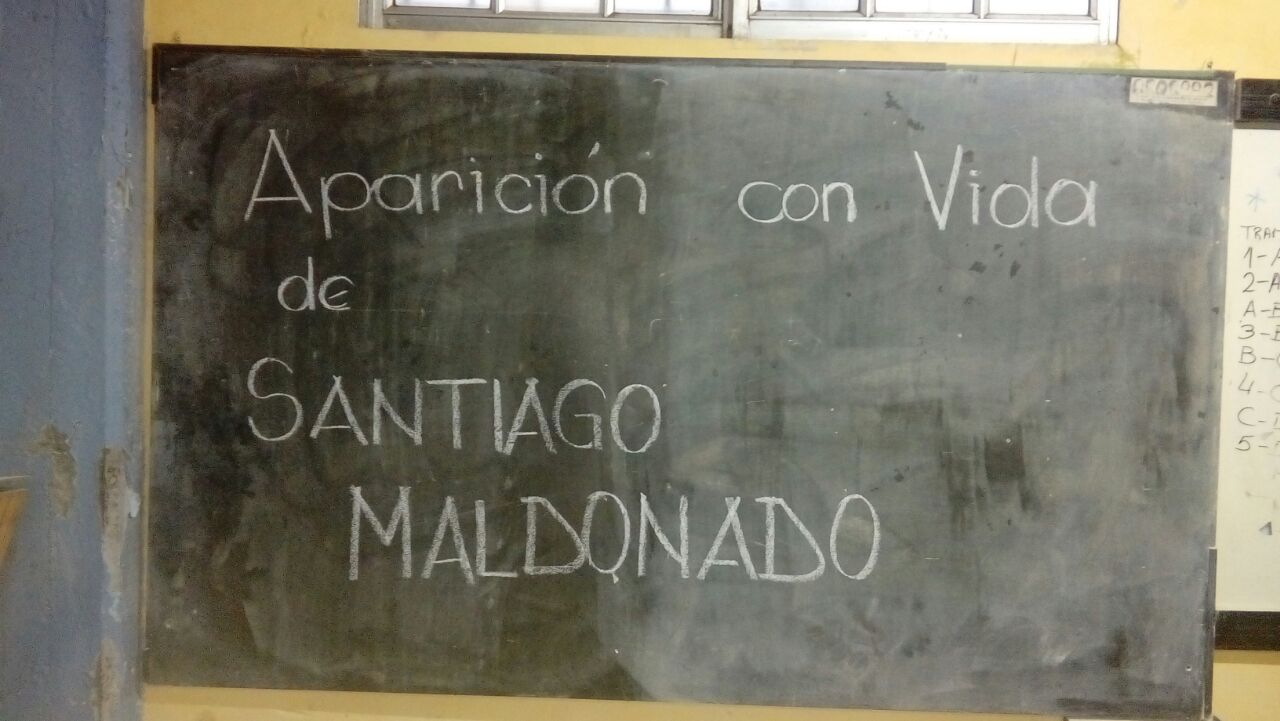 Aparición con Vida
de
SANTIAGO
MALDONADO
TRAM
1-A
2-A
A-B
3-B
B-
4-
C-
5-